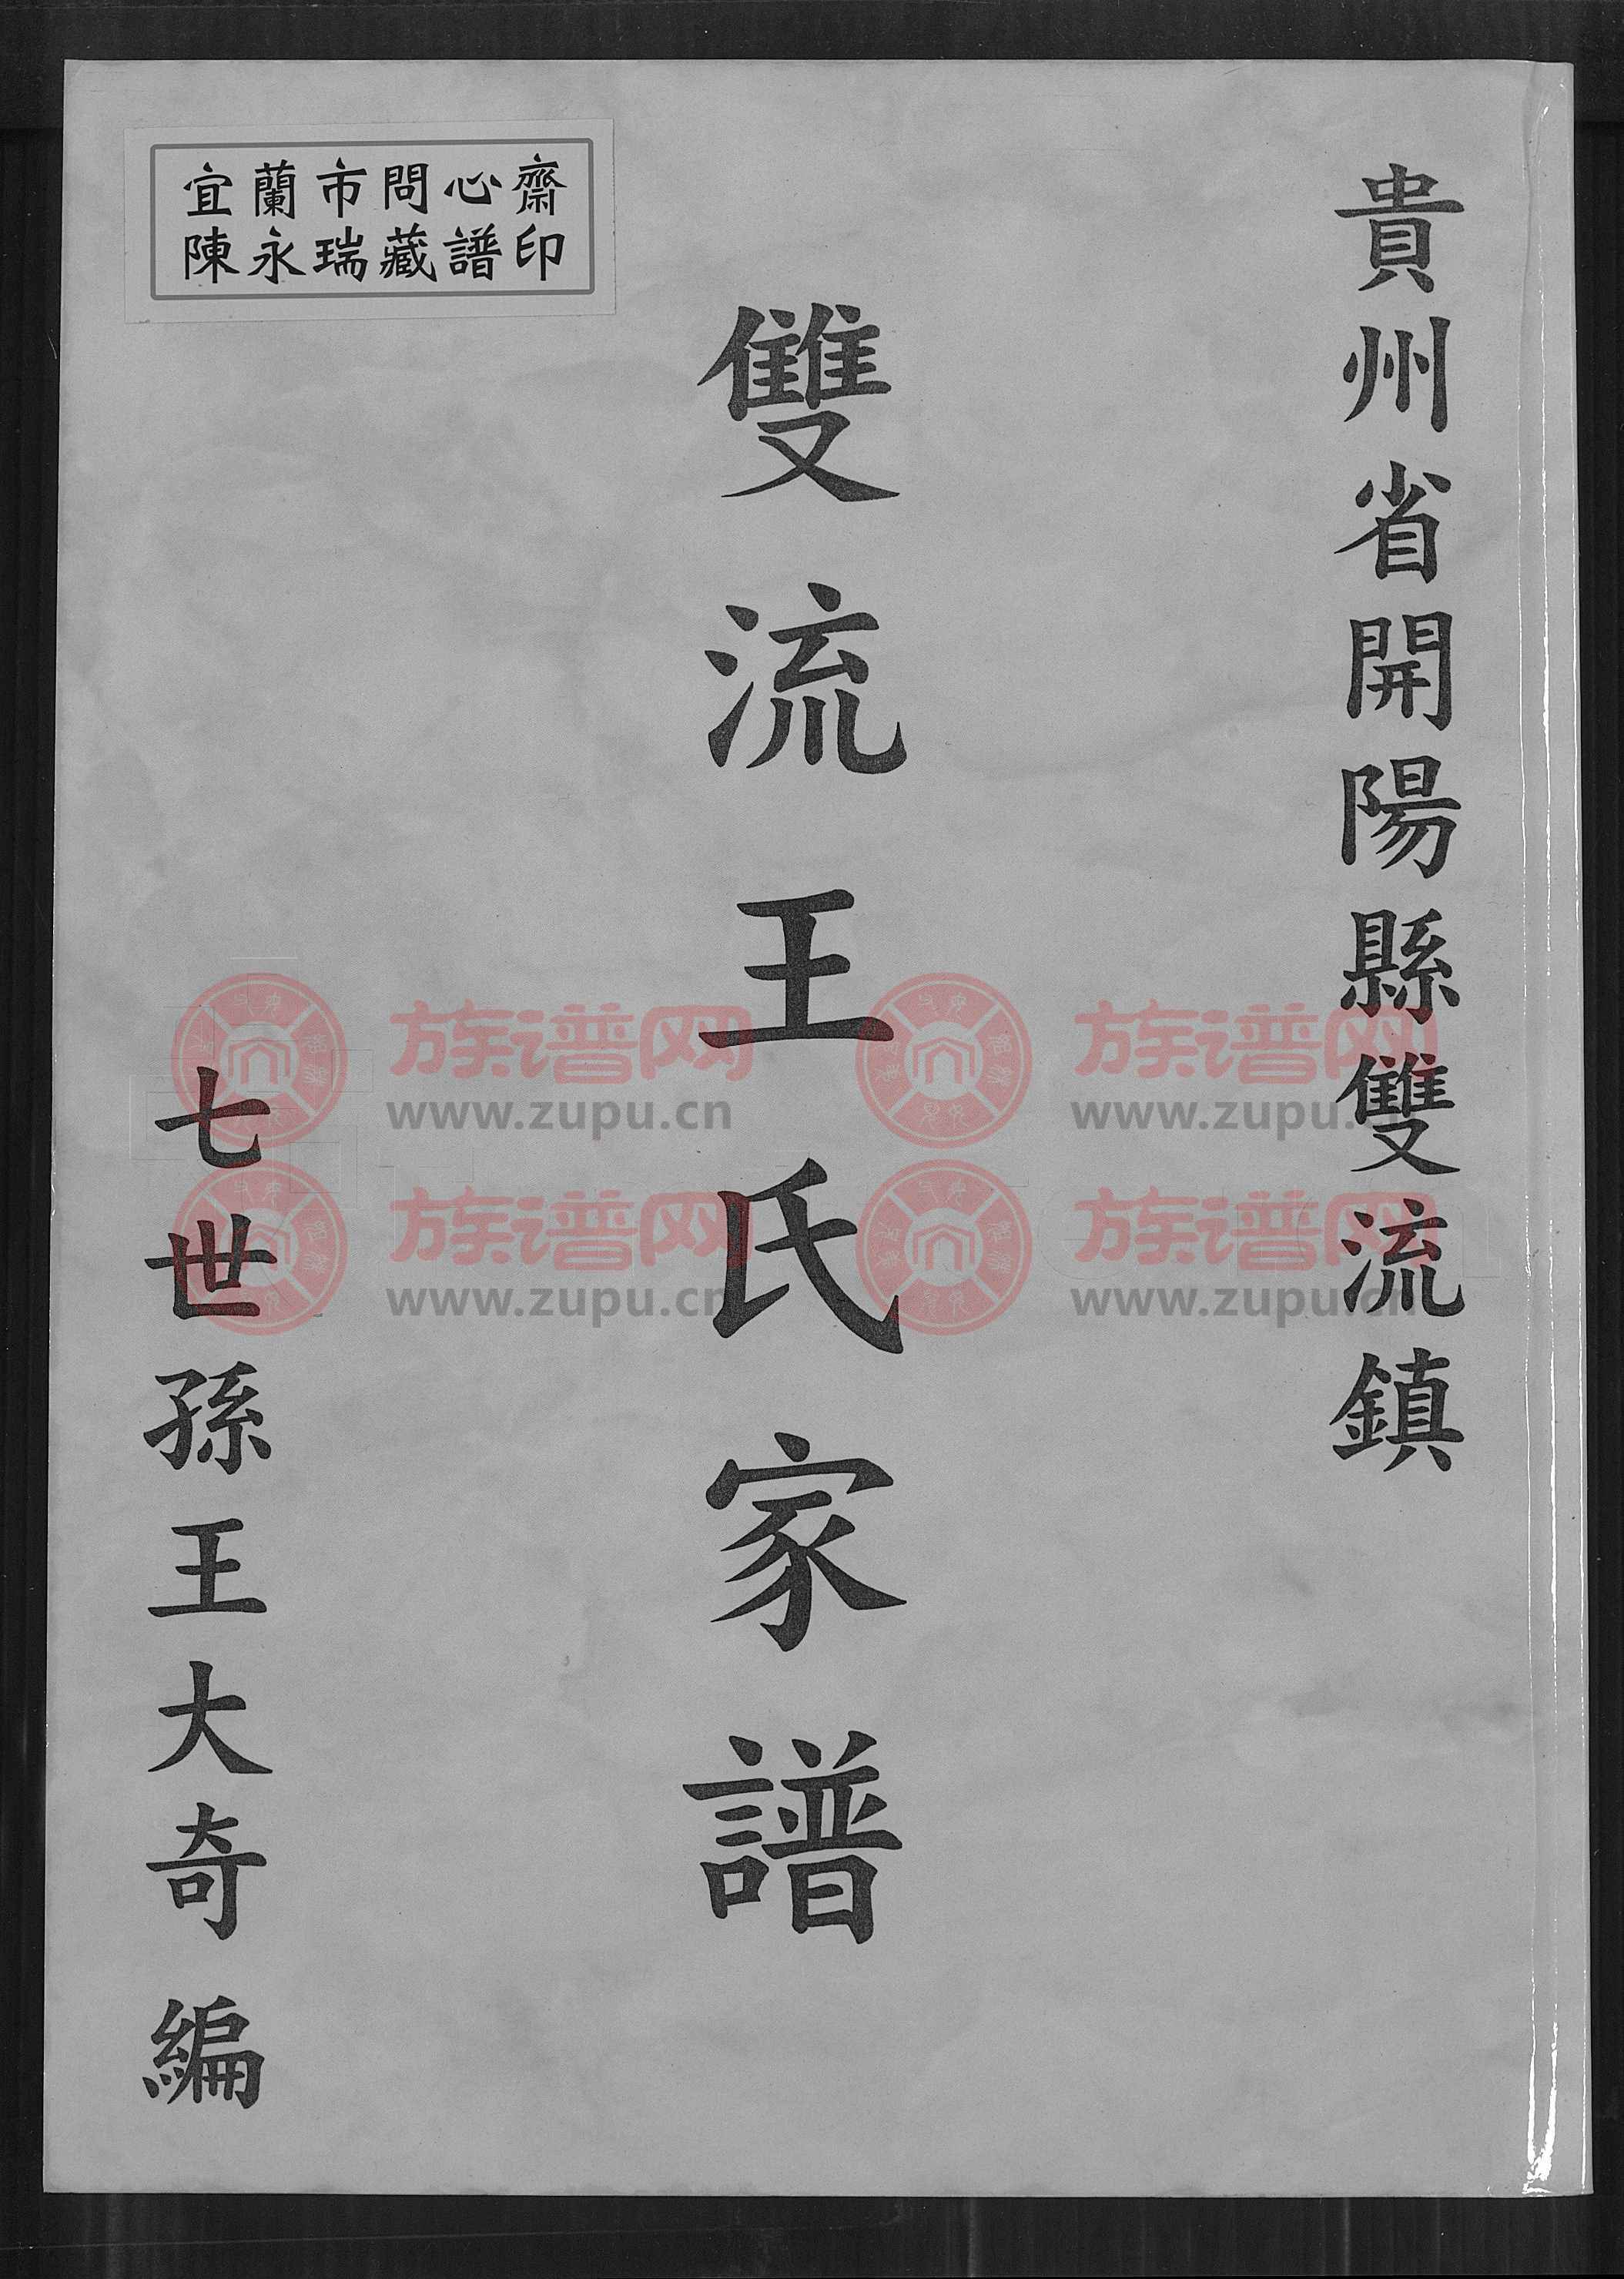 貴州省開陽縣雙流鎮
雙流王氏家譜
七世孫王大奇編
宜蘭市問心齋
陳永瑞藏譜印
族谱网
www.zupu.cn
族谱网
www.zupu.cn
族谱网
www.zupu.cn
族谱网
www.zupu.cn